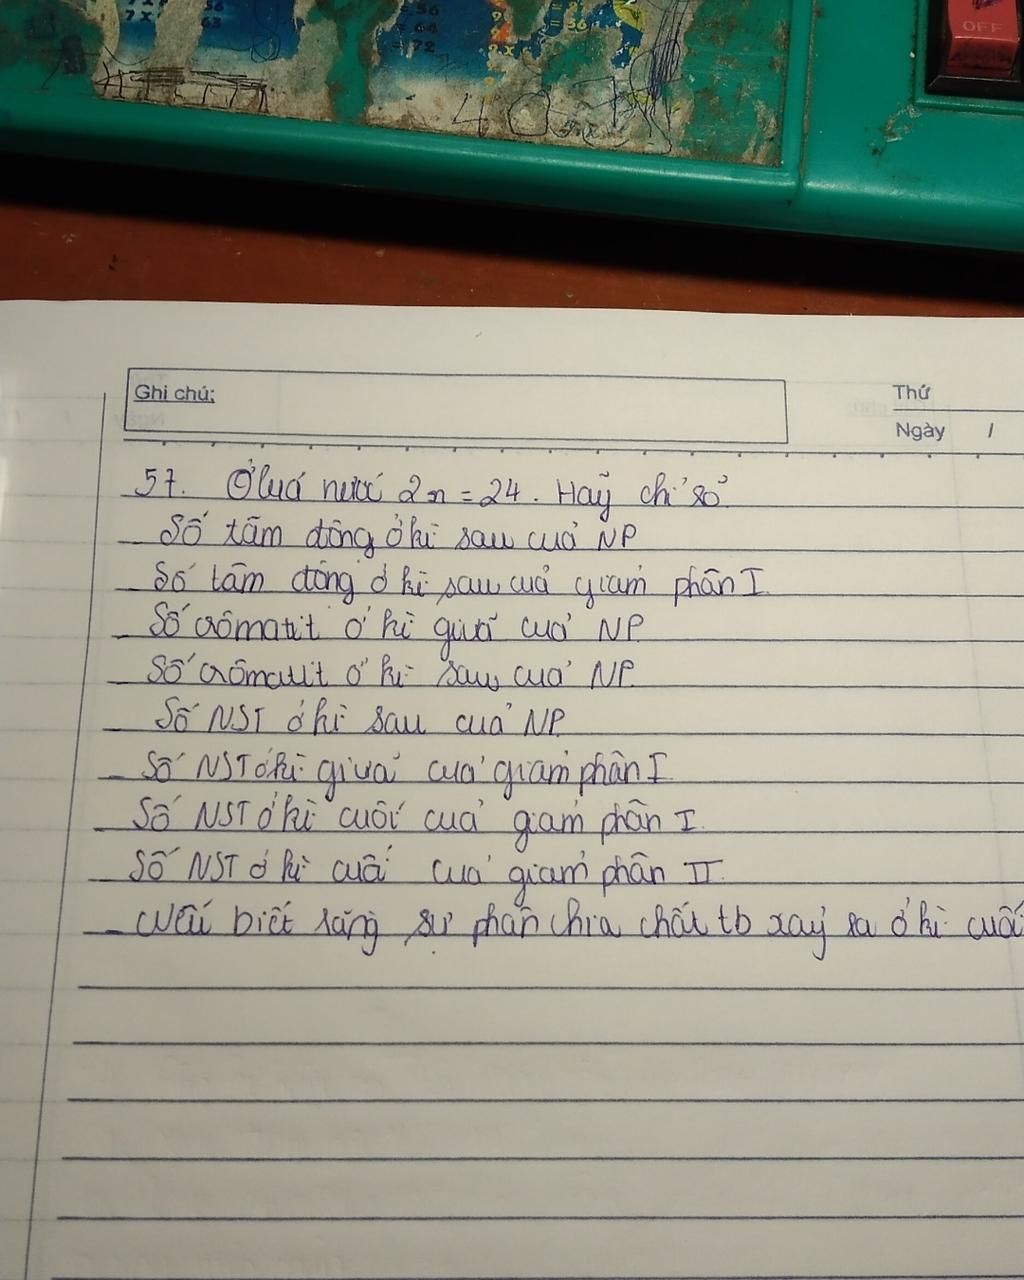 56
7 x 63
= 56
= 64
= 72
9 x
= 36
OFF
40
Ghi chú:
Thứ
Ngày /
57. Ở lúa nước 2n = 24. Hãy chỉ số
Số tâm động ở kì sau của NP
_ Số tâm động ở kì sau của giảm phân I
_ Số crômatit ở kì giữa của NP
_ Số crômatit ở kì sau của NP
_ Số NST ở kì sau của NP
_ Số NST ở kì giữa của giảm phân I
_ Số NST ở kì cuối của giảm phân I
_ Số NST ở kì cuối của giảm phân II
_ Nếu biết rằng sự phân chia chất tb xảy ra ở kì cuối